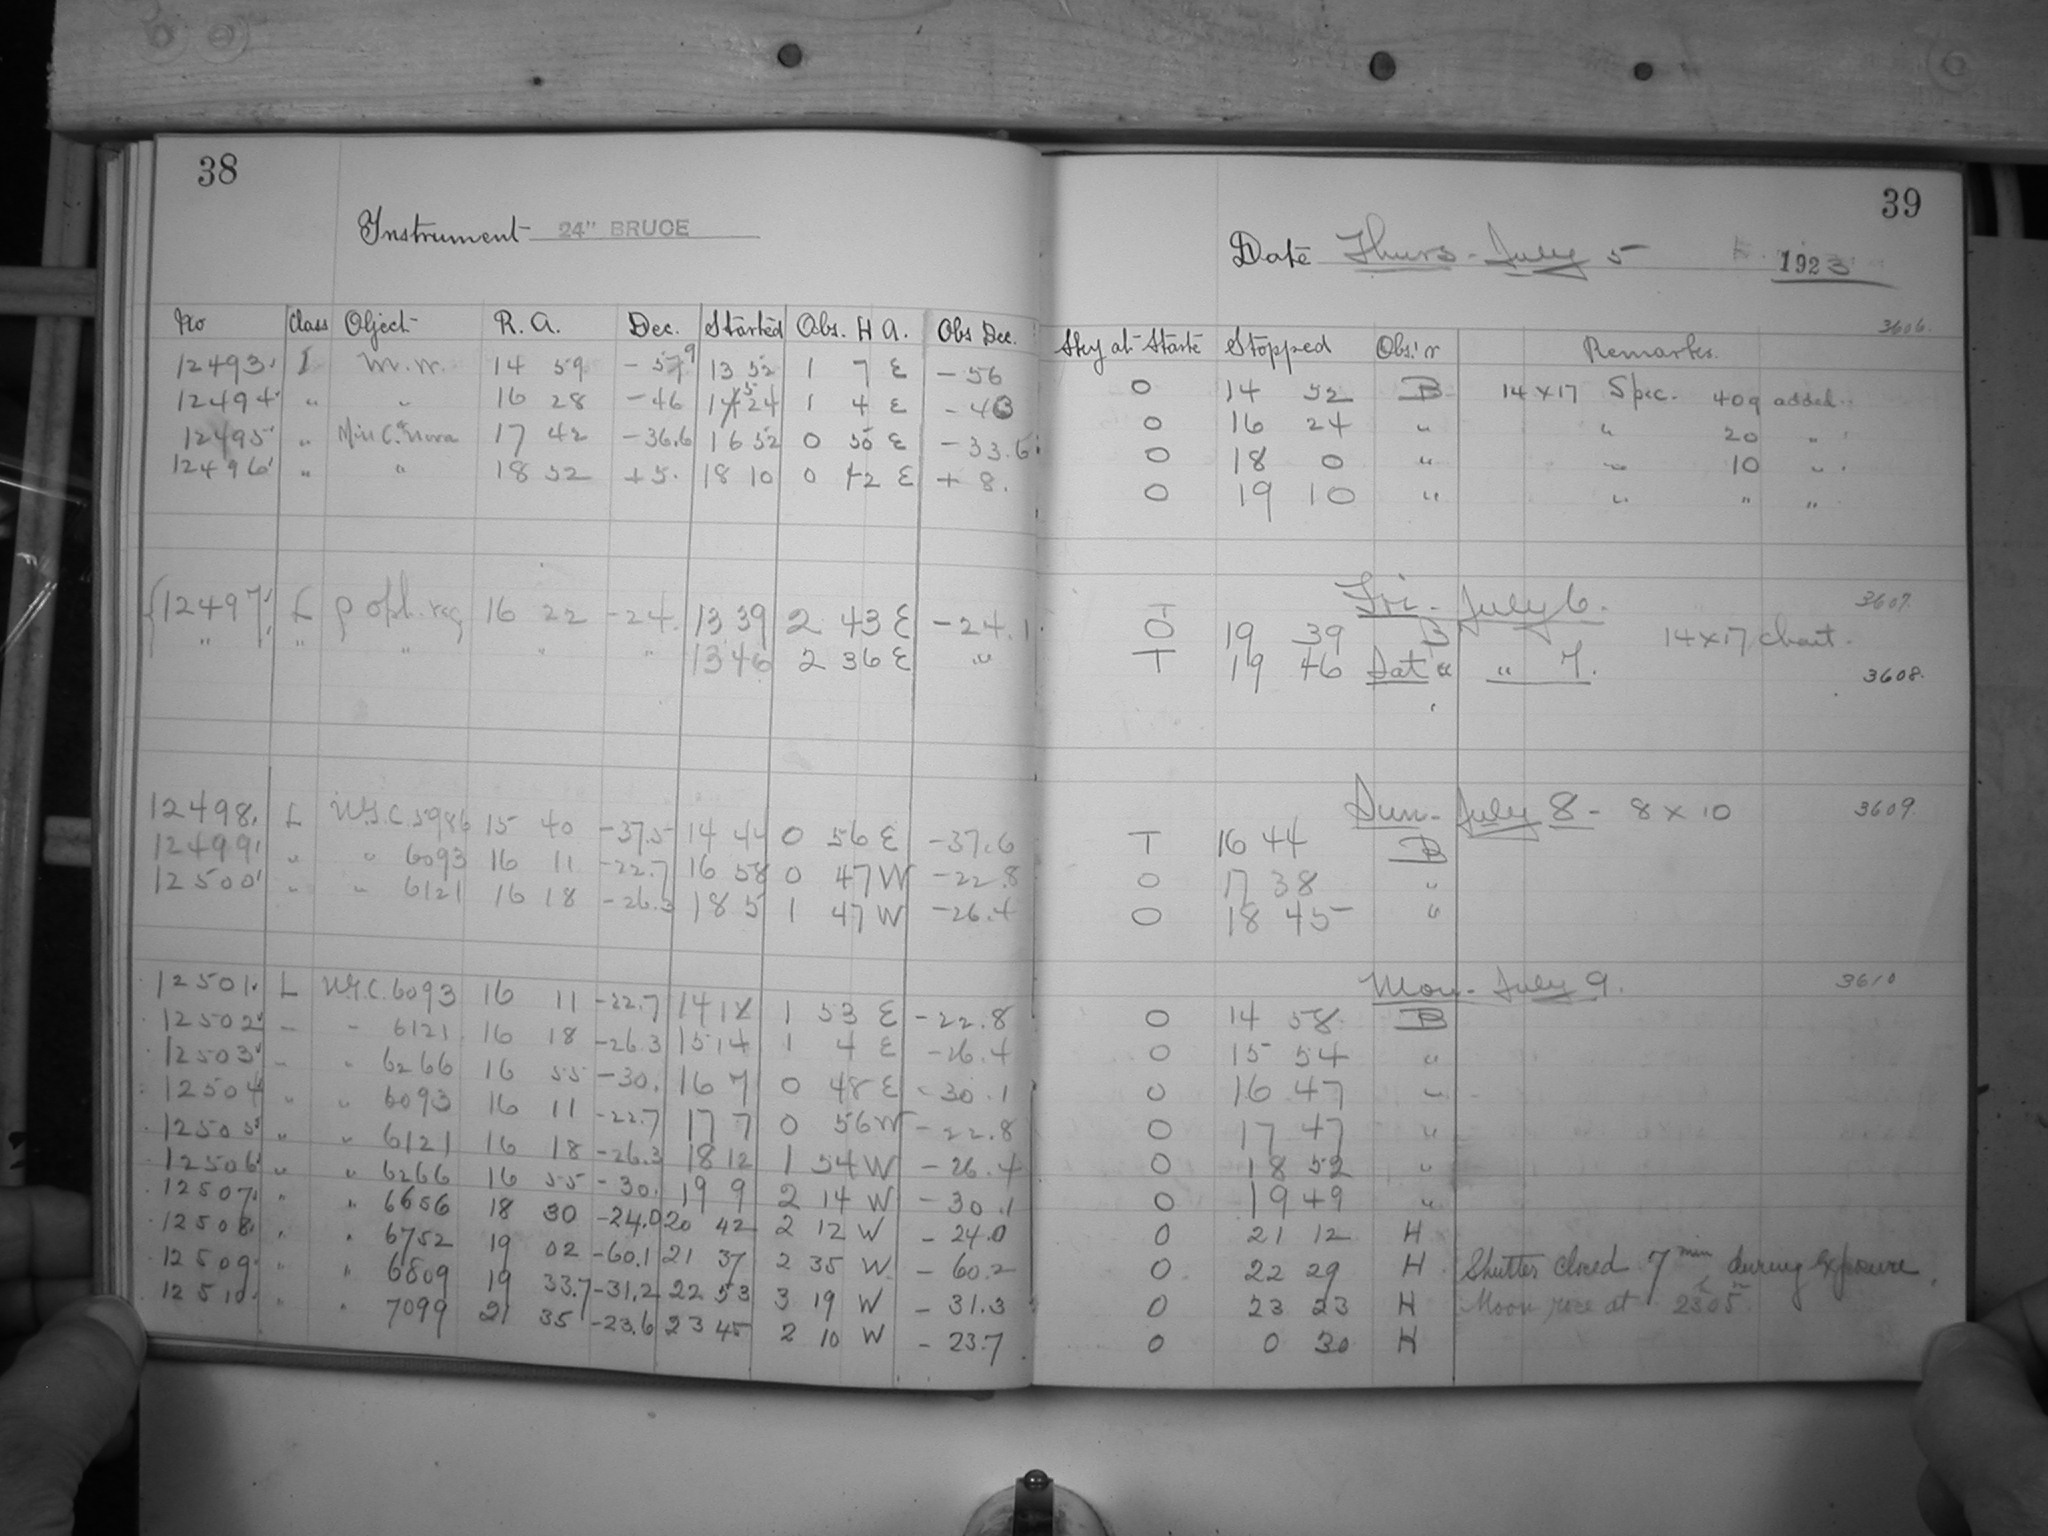 38
Instrument 24" BRUCE
No Class Object R. A. Dec. Started Obs. H A. Obs Dec.
12493 I M.W. 14 59 -57.9 13 52 1 7 E -56
12494 " " 16 28 -46 15 24 1 4 E -43
12495 " 17 42 -36.6 16 52 0 50 E -33.6
12496 " " 18 52 +5. 18 10 0 42 E + 8.
12497 L ρ oph. reg 16 22 -24. 13 39 2 43 E -24.1
" " " " " 13 46 2 36 E "
12498 L N.G.C. 5986 15 40 -37.5 14 44 0 56 E -37.6
12499 " " 6093 16 11 -22.7 16 58 0 47 W -22.8
12500 " " 6121 16 18 -26.3 18 5 1 47 W -26.4
12501 L N.G.C. 6093 16 11 -22.7 14 18 1 53 E -22.8
12502 " " 6121 16 18 -26.3 15 14 1 4 E -26.4
12503 " " 6266 16 55 -30. 16 7 0 48 E -30.1
12504 " " 6093 16 11 -22.7 17 7 0 56 W -22.8
12505 " " 6121 16 18 -26.3 18 12 1 54 W -26.4
12506 " " 6266 16 55 -30. 19 9 2 14 W -30.1
12507 " " 6656 18 30 -24.0 20 42 2 12 W -24.0
12508 " " 6752 19 02 -60.1 21 37 2 35 W -60.2
12509 " " 6809 19 33.7 -31.2 22 53 3 19 W -31.3
12510 " " 7099 21 35 -23.6 23 45 2 10 W -23.7
39
Date Thurs - July 5 1923
3606.
Sky at Starte Stopped Obs'r Remarks.
0 14 52 B 14 x 17 Spec. 409 added.
0 16 24 " " 20 "
0 18 0 " " 10 "
0 19 10 " " " "
Fri - July 6. 3607.
T
0 19 39 B 14 x 17 chart.
T 19 46 " Sat " 7. 3608.
Sun - July 8 - 8 x 10 3609.
T 16 44 B
0 17 38 "
0 18 45 "
Mon - July 9. 3610
0 14 58 B
0 15 54 "
0 16 47 "
0 17 47 "
0 18 52 "
0 19 49 "
0 21 12 H
0 22 29 H Shutter closed 7 min during exposure.
0 23 23 H Moon rose at 23h 05m.
0 0 30 H